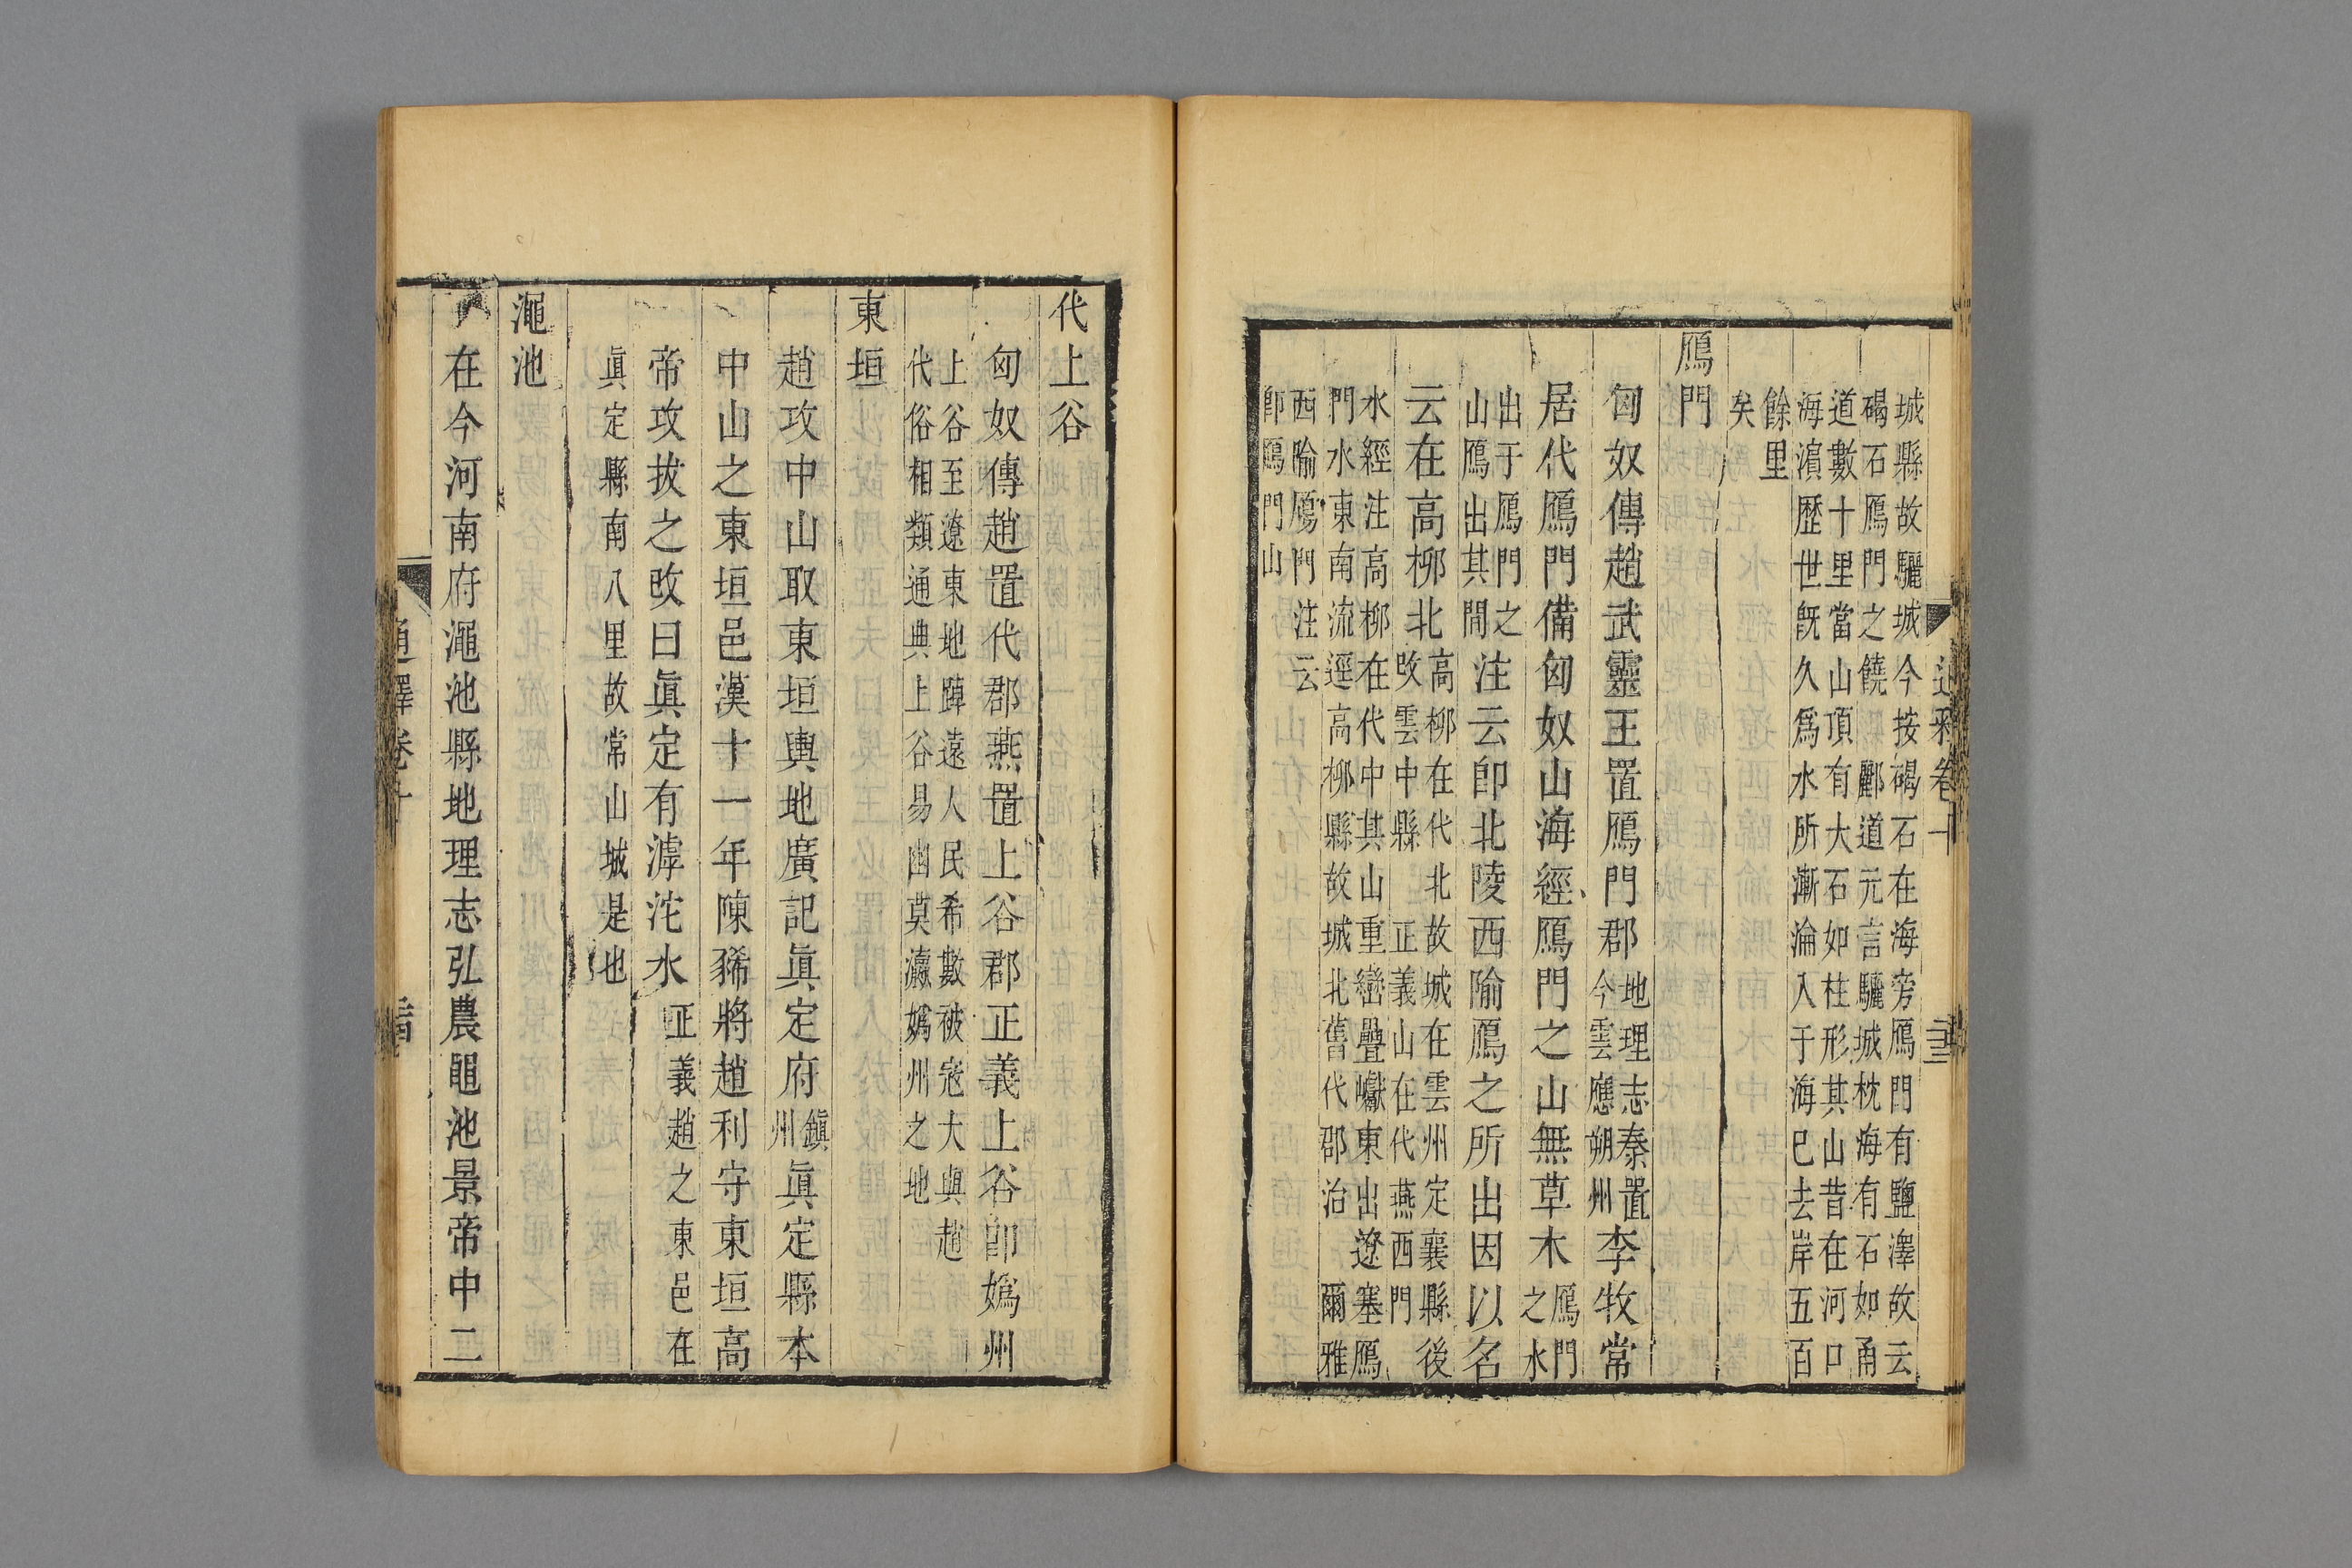 城縣故驪城今按碣石在海旁鴈門有鹽澤故云
碣石鴈門之饒酈道元言驪城枕海有石如甬
道數十里當山頂有大石如柱形其山昔在河口
海濵歷世旣久爲水所漸淪入于海已去岸五百
餘里
矣
鴈門
匈奴傳趙武靈王置鴈門郡
地理志秦置
今雲應朔州
李牧常
居代鴈門備匈奴山海經鴈門之山無草木
鴈門
之水
出于鴈門之
山鴈出其間
注云卽北陵西隃鴈之所出因以名
云在高柳北
高柳在代北故城在雲州定襄縣後
改雲中縣 正義山在代燕西門
水經注高柳在代中其山重巒疊巘東出遼塞鴈
門水東南流逕高柳縣故城北舊代郡治 爾雅
西隃鴈門注云
卽鴈門山
通釋卷十
二十三
代上谷
匈奴傳趙置代郡燕置上谷郡正義上谷卽媯州
上谷至遼東地踔遠人民希數被宼大與趙
代俗相類通典上谷易幽莫瀛媯州之地
東垣
趙攻中山取東垣輿地廣記眞定府
鎭
州
眞定縣本
中山之東垣邑漢十一年陳豨將趙利守東垣高
帝攻拔之改曰眞定有滹沱水
正義趙之東邑在
眞定縣南八里故常山城是也
澠池
在今河南府澠池縣地理志弘農黽池景帝中二
通釋卷十